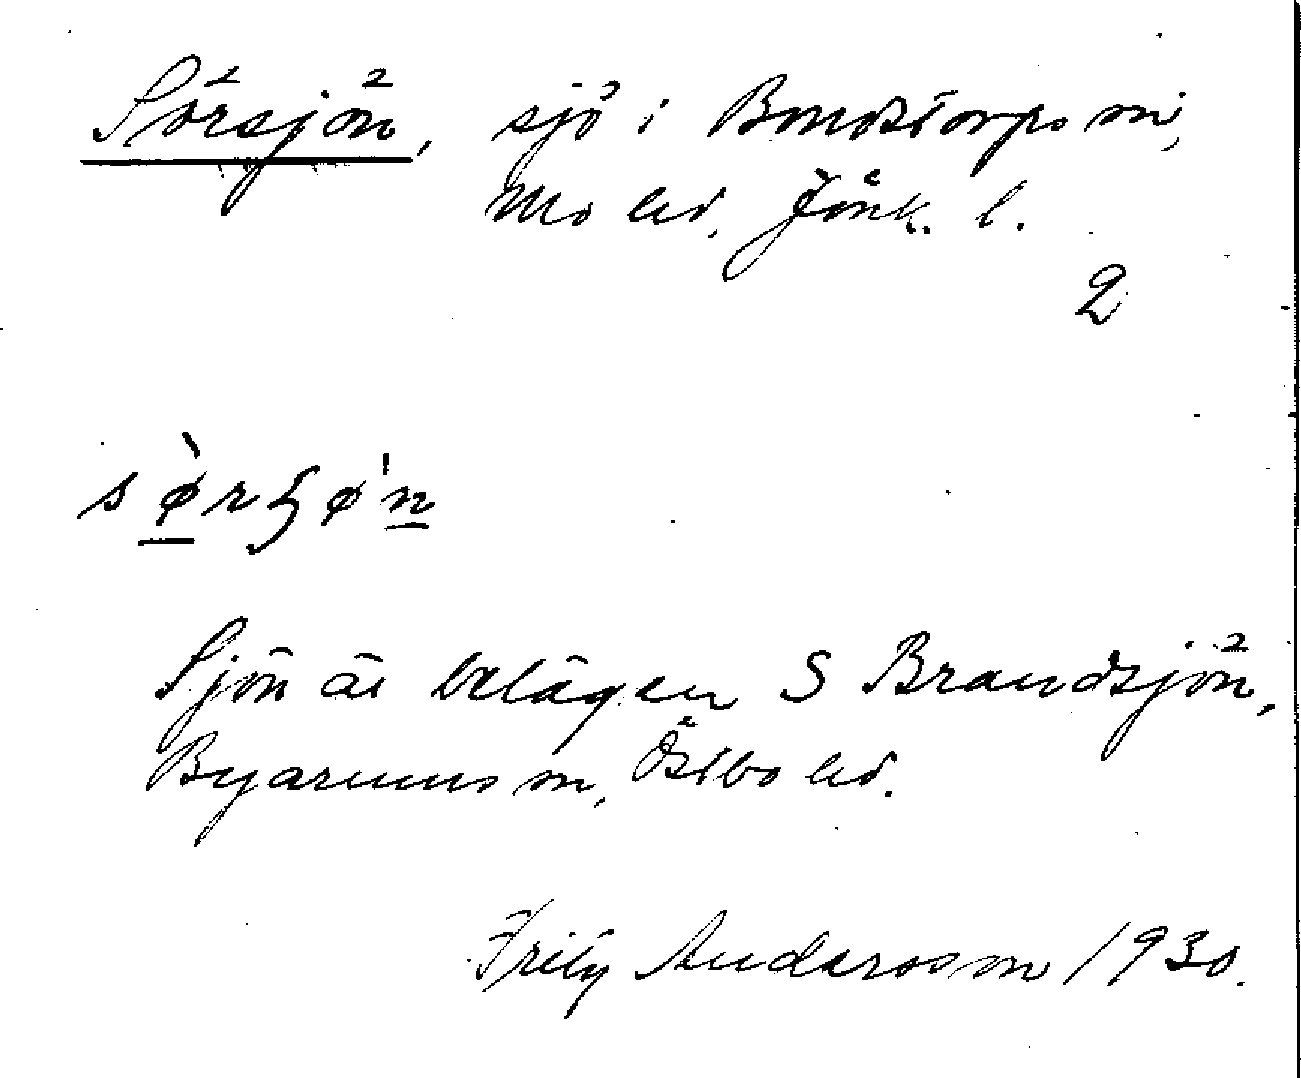 Sörsjön, sjö i Bondstorps sn,
Mo hd, Jönk. l.
2
Sjön är belägen S Brandsjön,
Byarums sn, Östbo hd.
Fritz Andersson 1930.